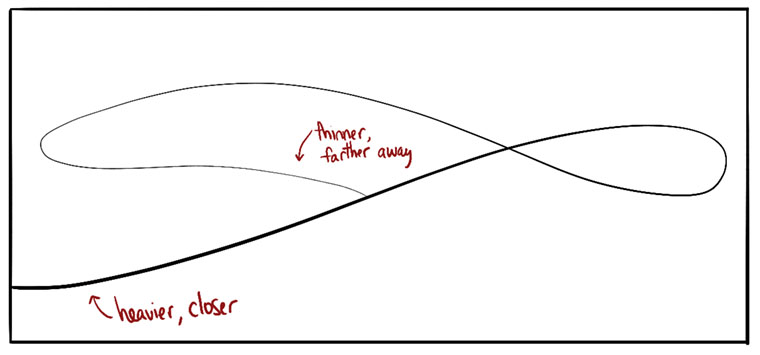 thinner,
farther away
heavier, closer